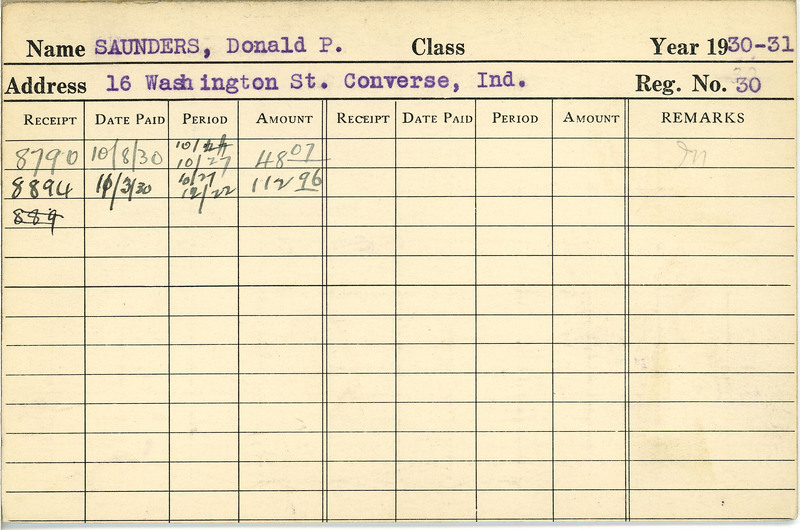 Name SAUNDERS, Donald P. Class Year 1930-31
Address 16 Washington St. Converse, Ind. Reg. No. 30
RECEIPT DATE PAID PERIOD AMOUNT RECEIPT DATE PAID PERIOD AMOUNT REMARKS
8790 10/8/30 10/27 48 07
8894 11/3/30 10/27 12/22 112 96
889